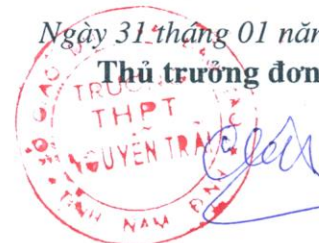 Ngày 31 tháng 01 năm
Thủ trưởng đơn
TRƯỜNG
THPT
NGUYỄN TRÃI
TỈNH NAM